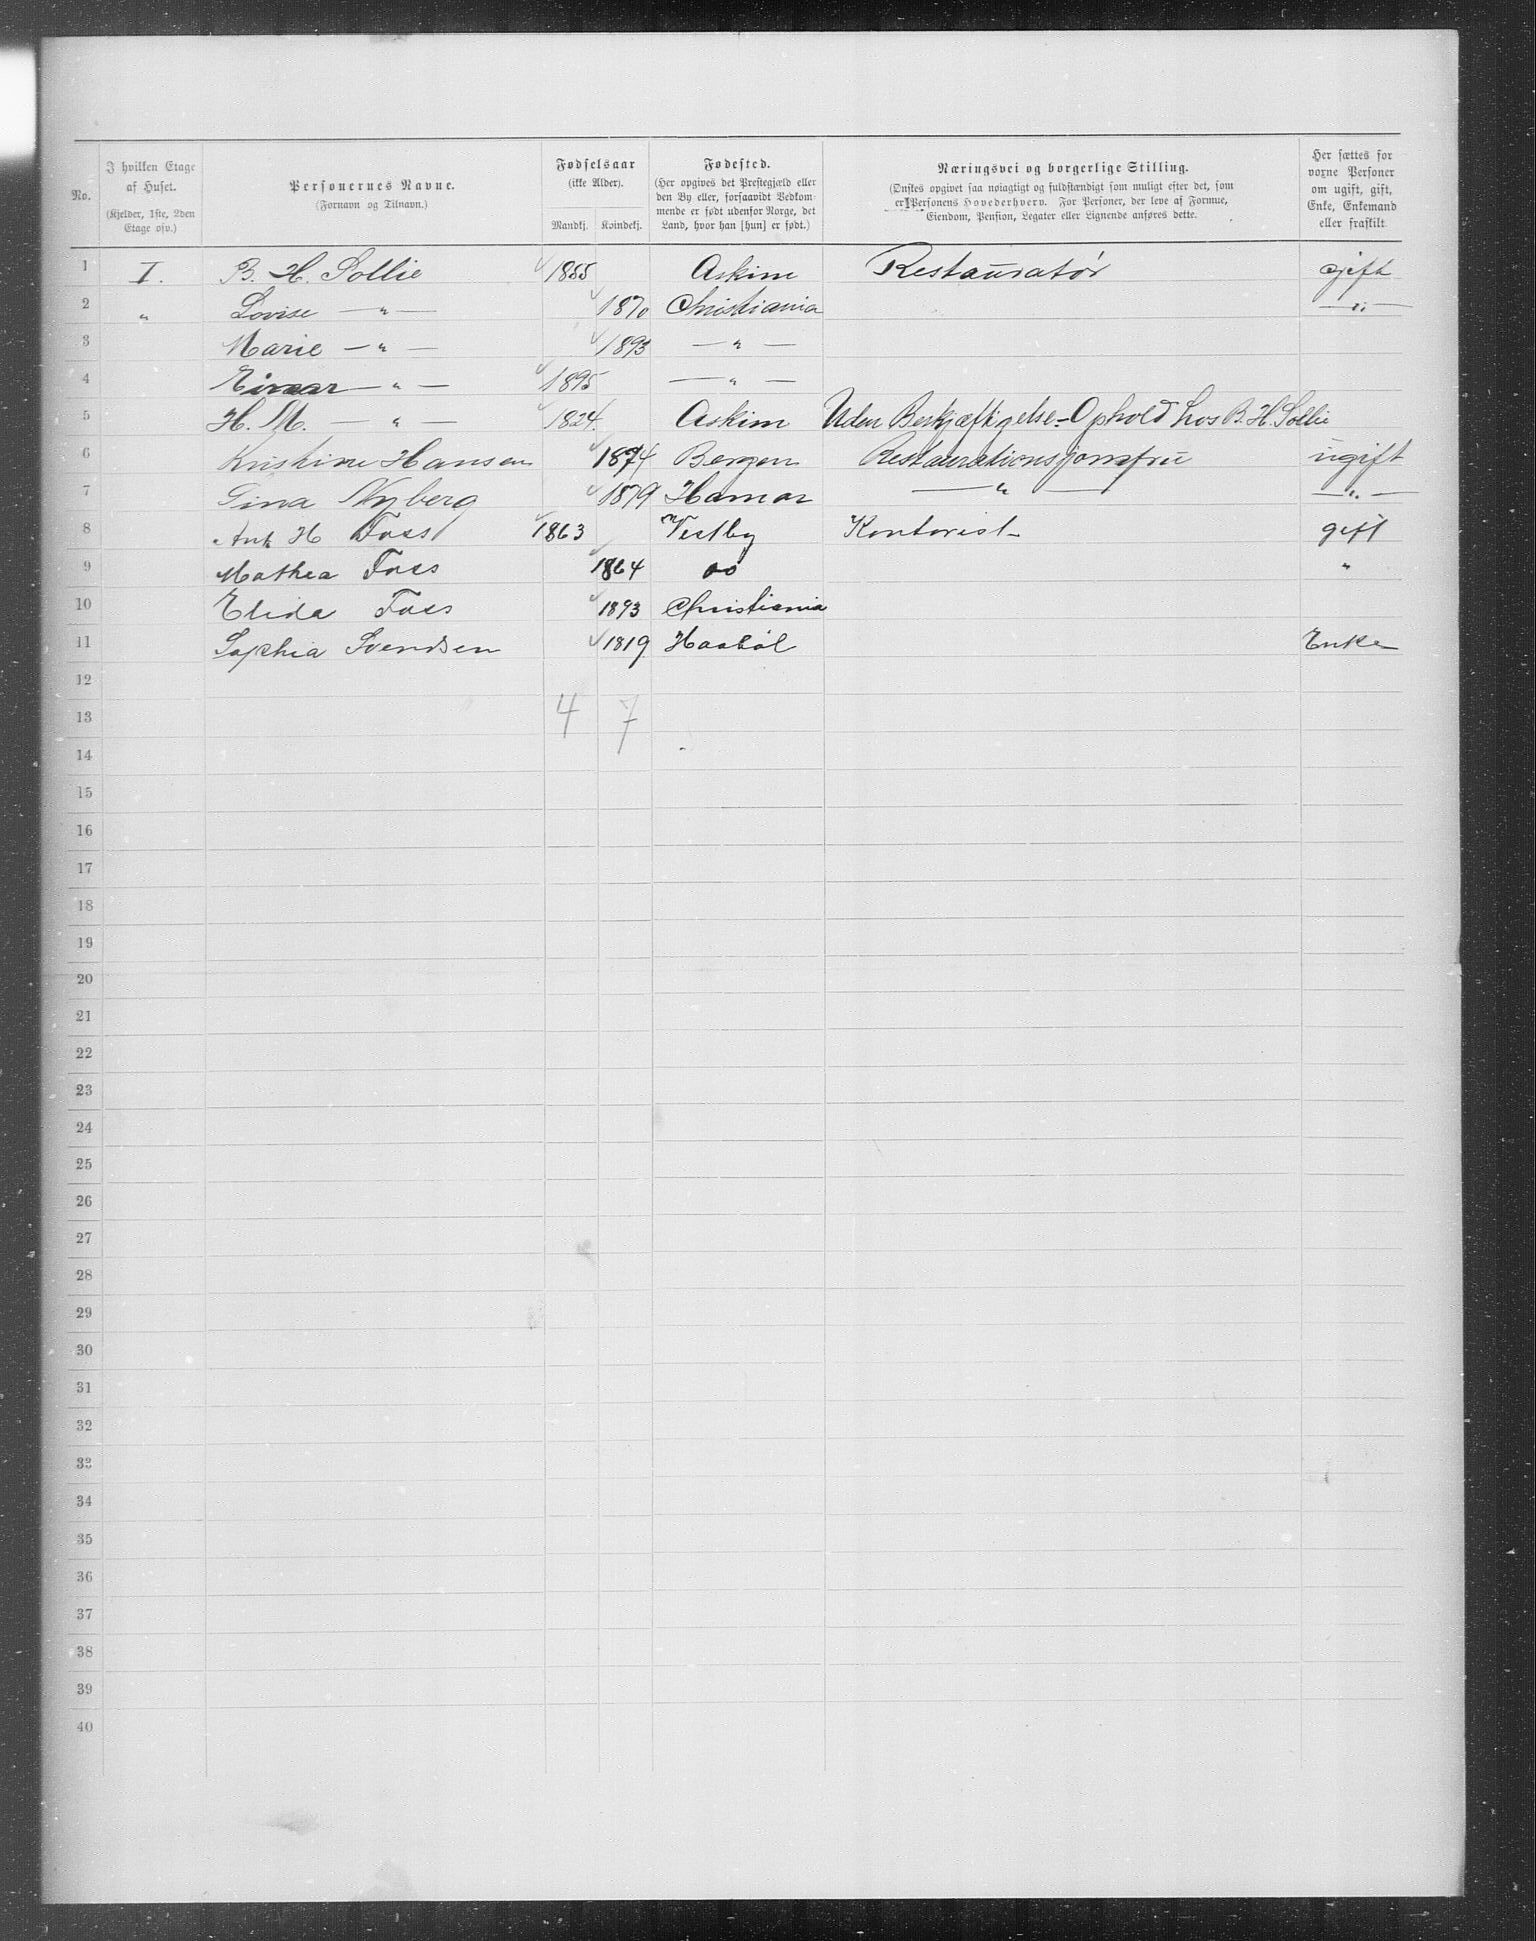 No.
I hvilken Etage af Huset.
(Kjelder, 1ste, 2den Etage osv.)
Personernes Navne.
(Fornavn og Tilnavn.)
Fødselsaar
(ikke Alder).
Mandkj. Kvindekj.
Fødested.
(Her opgives det Prestegjæld eller
den By eller, forsaavidt Vedkom-
mende er født udenfor Norge, det
Land, hvor han [hun] er født.)
Næringsvei og borgerlige Stilling.
(Ønskes opgivet saa nøiagtigt og fuldstændigt som muligt efter det, som
er Personens Hovederhverv. For Personer, der leve af Formue,
Eiendom, Pension, Legater eller Lignende anføres dette.
Her sættes for
voxne Personer
om ugift, gift,
Enke, Enkemand
eller fraskilt
1 I. B. H. Sollie 1855 Askim Restauratør gift
2 " Lovise — " — 1870 Christiania — " —
3 Marie — " — 1893 — " —
4 Einar — " — 1895 — " —
5 H. M. — " — 1824. Askim Uden Beskjæftigelse - Ophold hos B. H. Sollie
6 Kristine Hansen 1874 Bergen Restaurationsjomfru ugift
7 Gina Nyberg 1879 Hamar — " — — " —
8 Ant. H Foss 1863 Vestby Kontorist gift
9 Mathea Foss 1864 do "
10 Elida Foss 1893 Christiania
11 Sophia Svendsen 1819 Haabøl Enke
12
13 4 7
14
15
16
17
18
19
20
21
22
23
24
25
26
27
28
29
30
31
32
33
34
35
36
37
38
39
40